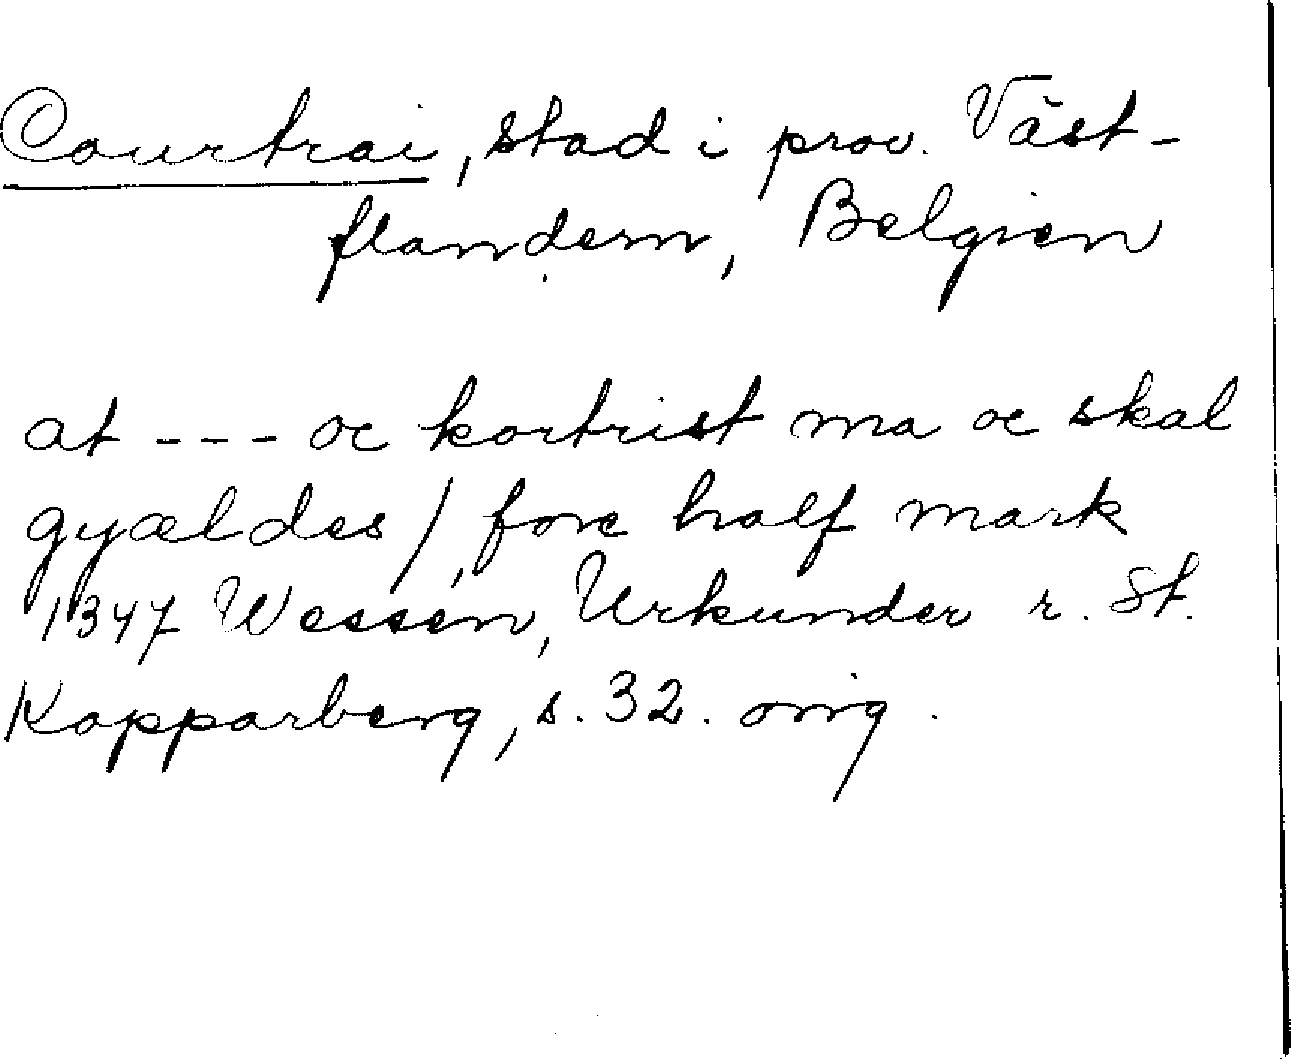 Courtrai, stad i prov. Väst-
flandern, Belgien
at --- oc kortrist ma oc skal
gyældes /, fore half mark
1347 Wessen, Urkunder r. St.
Kopparberg, s. 32. orig.